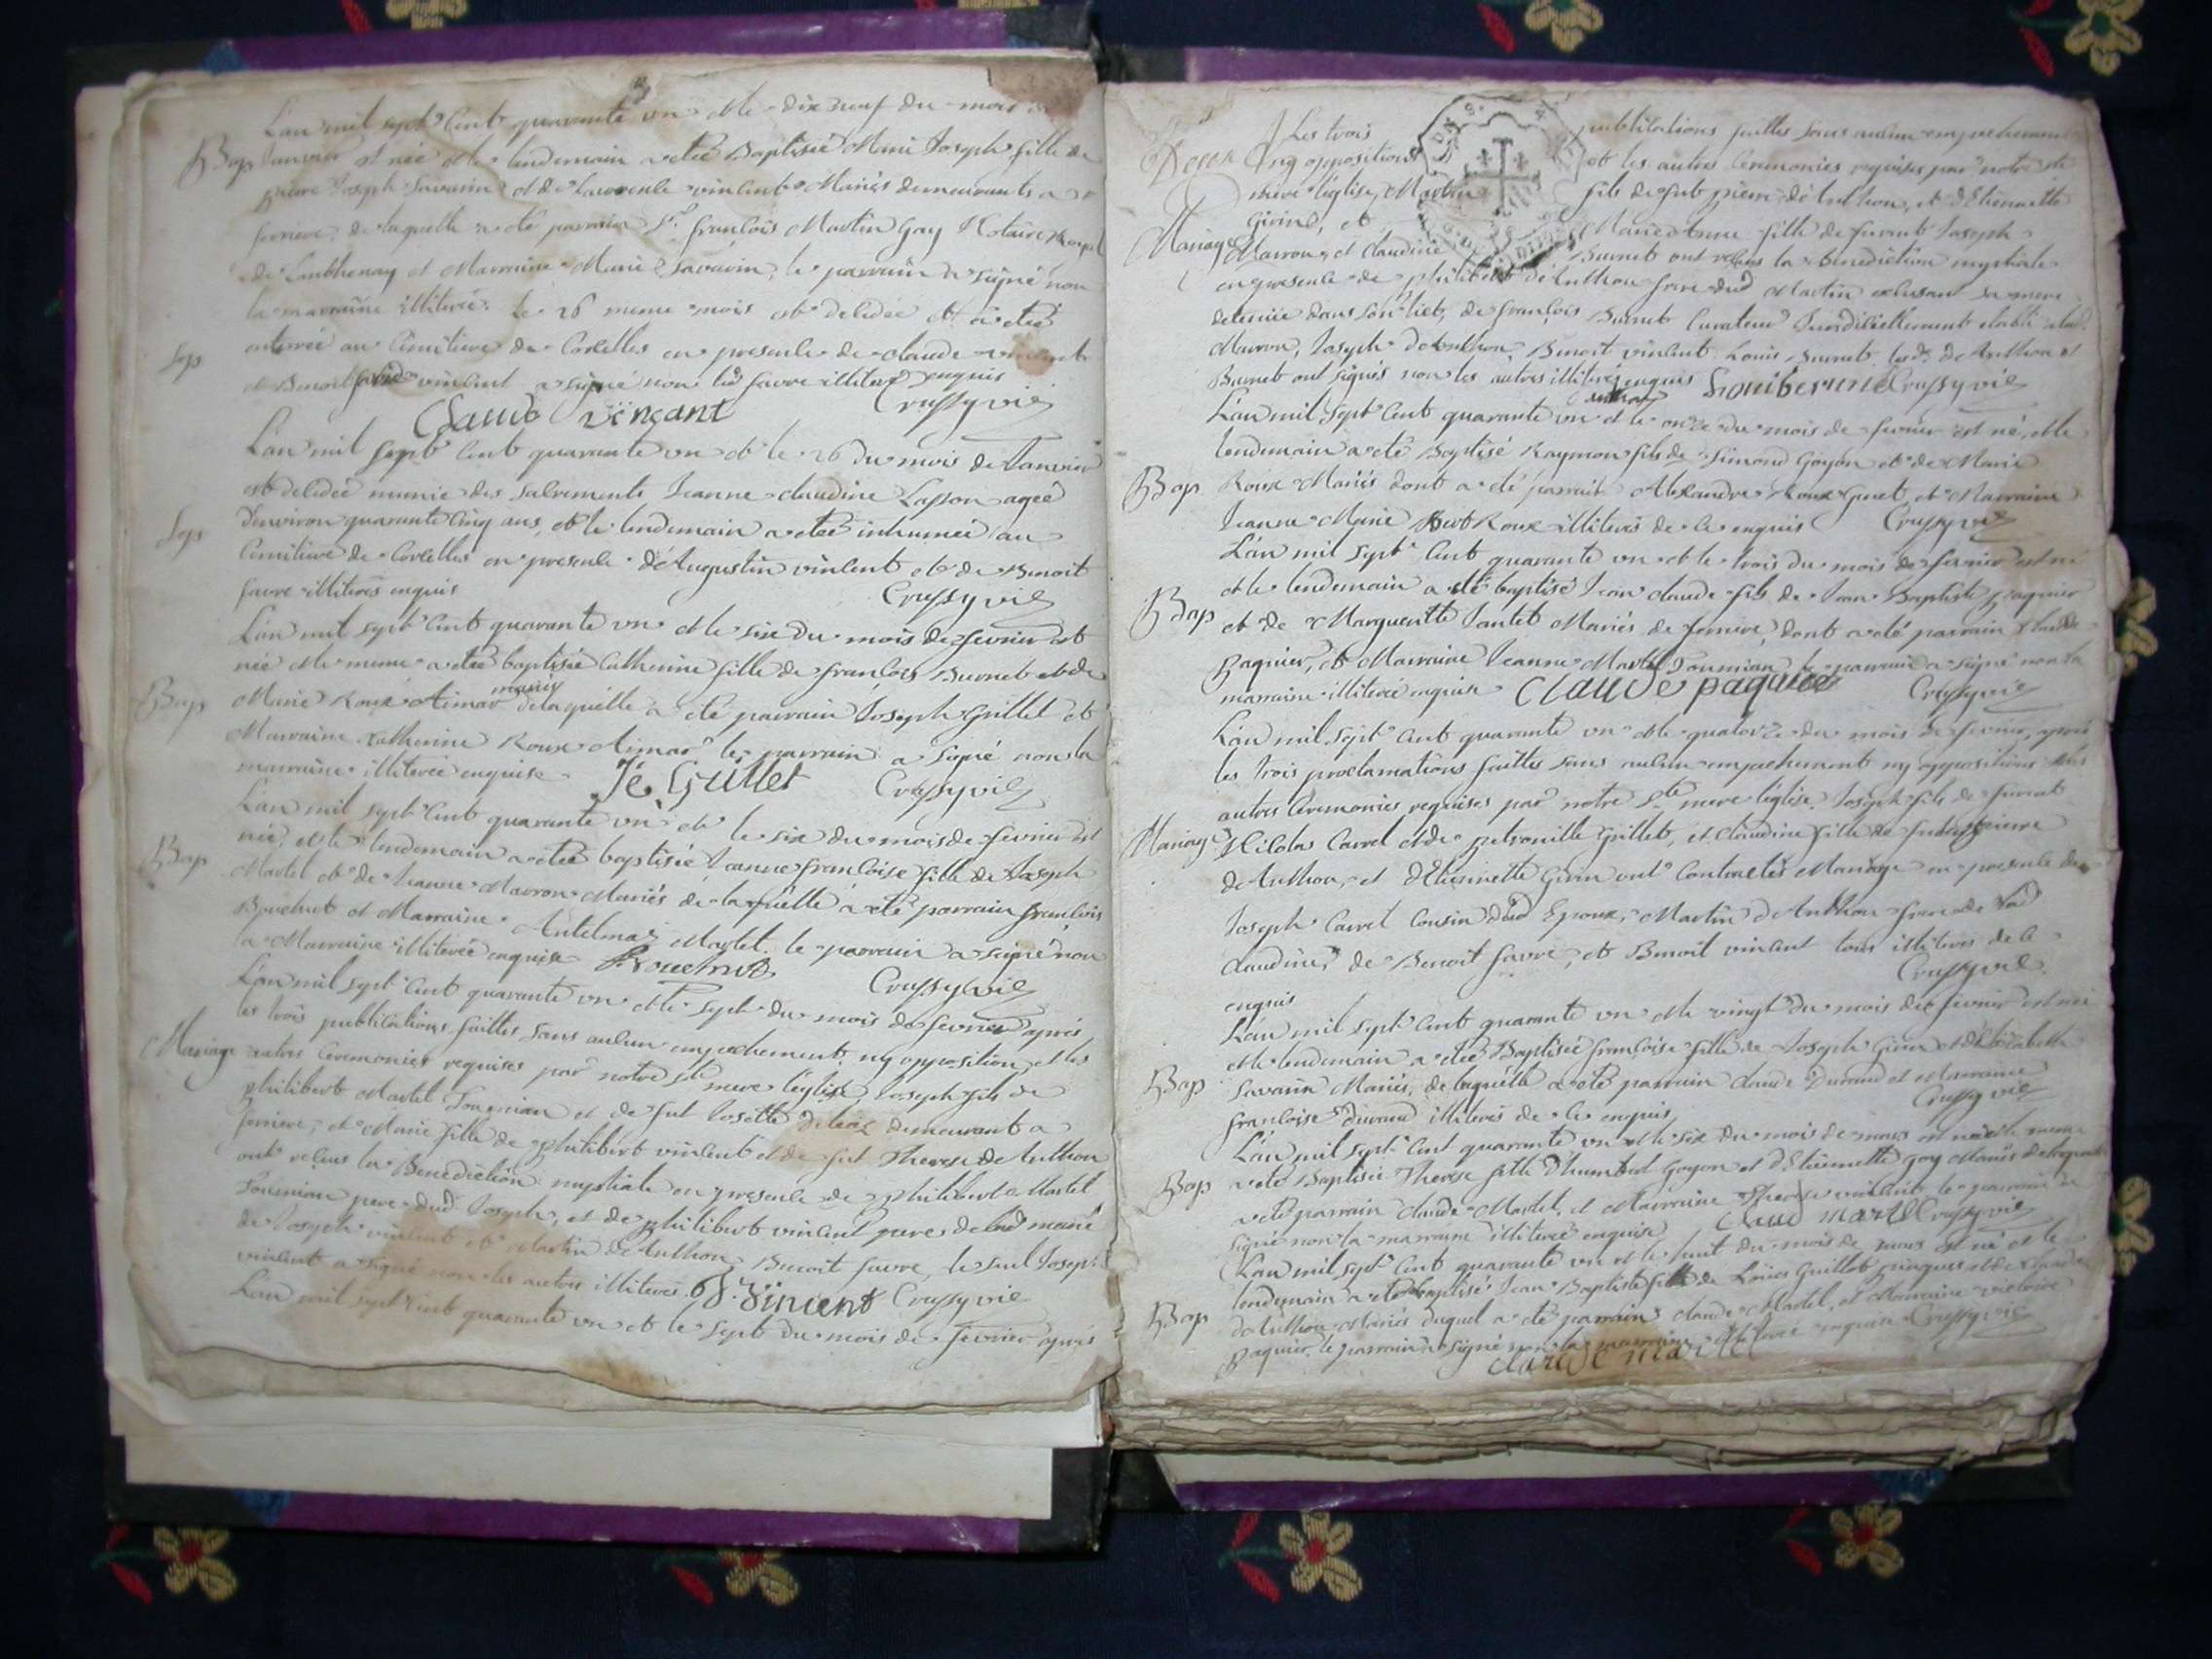 L'an mil sept cent quarante un et le dix neuf du mois
Bap Janvier est née et le lendemain a eté Baptisée Marie Joseph fille de
pierre Joseph Savarin et de Laurence vincent Mariés demeurants a
ferriere, de laquelle a eté parrain Sr françois Martin Gay Notaire Royal
de et Marraine Marie Savarin, le parrain a signé non
la marraine illiterée. le 26 meme mois est decedée et a eté
Sep enterrée au Cimitiere de Corcelles en presence de claude vincent
et Benoit favre vincent a signé non led favre illiteré enquis
Claude vinçant Crussy vic
L'an mil sept cent quarante un et le 26 du mois de Janvier
est decedée munie des sacrements Jeanne claudine Lasson agée
Sep d'environ quarante cinq ans, et le lendemain a eté inhumée au
Cimitiere de Corcelles en presence d'Augustin vincent et de Benoit
favre illiterés enquis Crussy vic
L'an mil sept cent quarante un et le six du mois de fevrier est
née et le meme a eté baptisée Catherine fille de françois Burnet et de
Bap Marie Roux Aimar mariés de laquelle a eté parrain Joseph Grillet et
Marraine Catherine Roux Aimar le parrain a signé non la
marraine illiterée enquise Je Grillet Crussy vic
L'an mil sept cent quarante un et le six du mois de fevrier est
née, et le lendemain a eté baptisée Jeanne françoise fille de Joseph
Bap Martel et de Jeanne Marron Mariés de laquelle a eté parrain françois
Bouchut et Marraine Antelmaz Martel le parrain a signé non
la Marraine illiterée enquise f. Bouchut Crussy vic
L'an mil sept cent quarante un et le sept du mois de fevrier après
les trois publications faittes sans aucun empechement ny opposition et les
Mariage autres ceremonies requises par notre Ste mere l'église, Joseph fils de
philibert Martel Tournian et de fut Josette demeurant a
ferriere, et Marie fille de philibert vincent et de fut Therese de Anthon
ont reçus la Benediction nuptiale en presence de philibert Martel
Tournian pere dud Joseph, et de philibert vincent pere de lad marie
de Joseph vincent et Martin de Anthon, Benoit favre, le seul Joseph
vincent a signé non les autres illiterés. J. vincent Crussy vic
L'an mil sept cent quarante un et le sept du mois de fevrier après
Les trois publications faittes sans aucun empechement
ny opposition et les autres Ceremonies requises par notre Ste
mere l'église, Martin fils de fut pierre de Anthon, et d'Etiennette
Girind, et Marie Anne fille de furent Joseph
Mariage Marron, et claudine Burnet ont reçus la benediction nuptiale
en presence de philibert de Anthon frere dud Martin excusant sa mere
detenüe dans son lict, de françois Burnet Curateur Juridiciellement etabli a lad.
Marron, Joseph de Anthon, Benoit vincent Louis Burnet lesd. de Anthon et
Burnet ont signés non les autres illiterés enquis Crussy vic
L'an mil sept cent quarante un et le onze du mois de fevrier est né, et le
lendemain a eté Baptisé Raymon fils de Simond Goyon et de Marie
Bap Roux Mariés dont a eté parrain Alexandre Roux et Marraine
Jeanne Marie Roux illiterés de ce enquis Crussy vic
L'an mil sept cent quarante un et le trois du mois de fevrier est né
et le lendemain a eté baptisé Jean claude fils de Jean Baptiste paquier
Bap et de Margueritte Jantet Mariés de ferriere, dont a eté parrain Claude
paquier, et Marraine Jeanne Martel Tournian le parrain a signé non la
marraine illiterée enquise Claude paquier Crussy vic
L'an mil sept cent quarante un et le quatorze du mois de fevrier, après
les trois proclamations faittes sans aucun empechement ny opposition et les
autres Ceremonies requises par notre Ste mere l'église Joseph fils de furent
Mariage Nicolas Carrel et de petronille Grillet, et claudine fille de fut pierre
de Anthon, et d'Etiennette Girin ont contractés Mariage en presence de
Joseph Carrel cousin dud Epoux, Martin de Anthon frere de lad
claudine, de Benoit favre, et Benoit vincent tous illiterés de ce
enquis Crussy vic
L'an mil sept cent quarante un et le vingt du mois de fevrier est née
et le lendemain a eté Baptisée françoise fille de Joseph Girin et d'Elizabeth
Bap Savarin Mariés, de laquelle a eté parrain claude Durand et Marraine
françoise Durand illiterés de ce enquis Crussy vic
L'an mil sept cent quarante un et le six du mois de mars est née et le meme
Bap a eté Baptisée Therese fille d'humbert Goyon et d'Etiennette Gay Mariés de laquelle
a eté parrain claude Martel, et Marraine Therese vincent le parrain a
signé non la marraine illiterée enquise Claud martel Crussy vic
L'an mil sept cent quarante un et le huit du mois de mars est né et le
lendemain a eté baptisé Jean Baptiste fils de Louis Guillot et de Claudine
Bap de Anthon Mariés duquel a eté parrain claude Martel, et Marraine victoire
paquier, le parrain a signé non la marraine illiterée enquise Crussy vic
claude martel